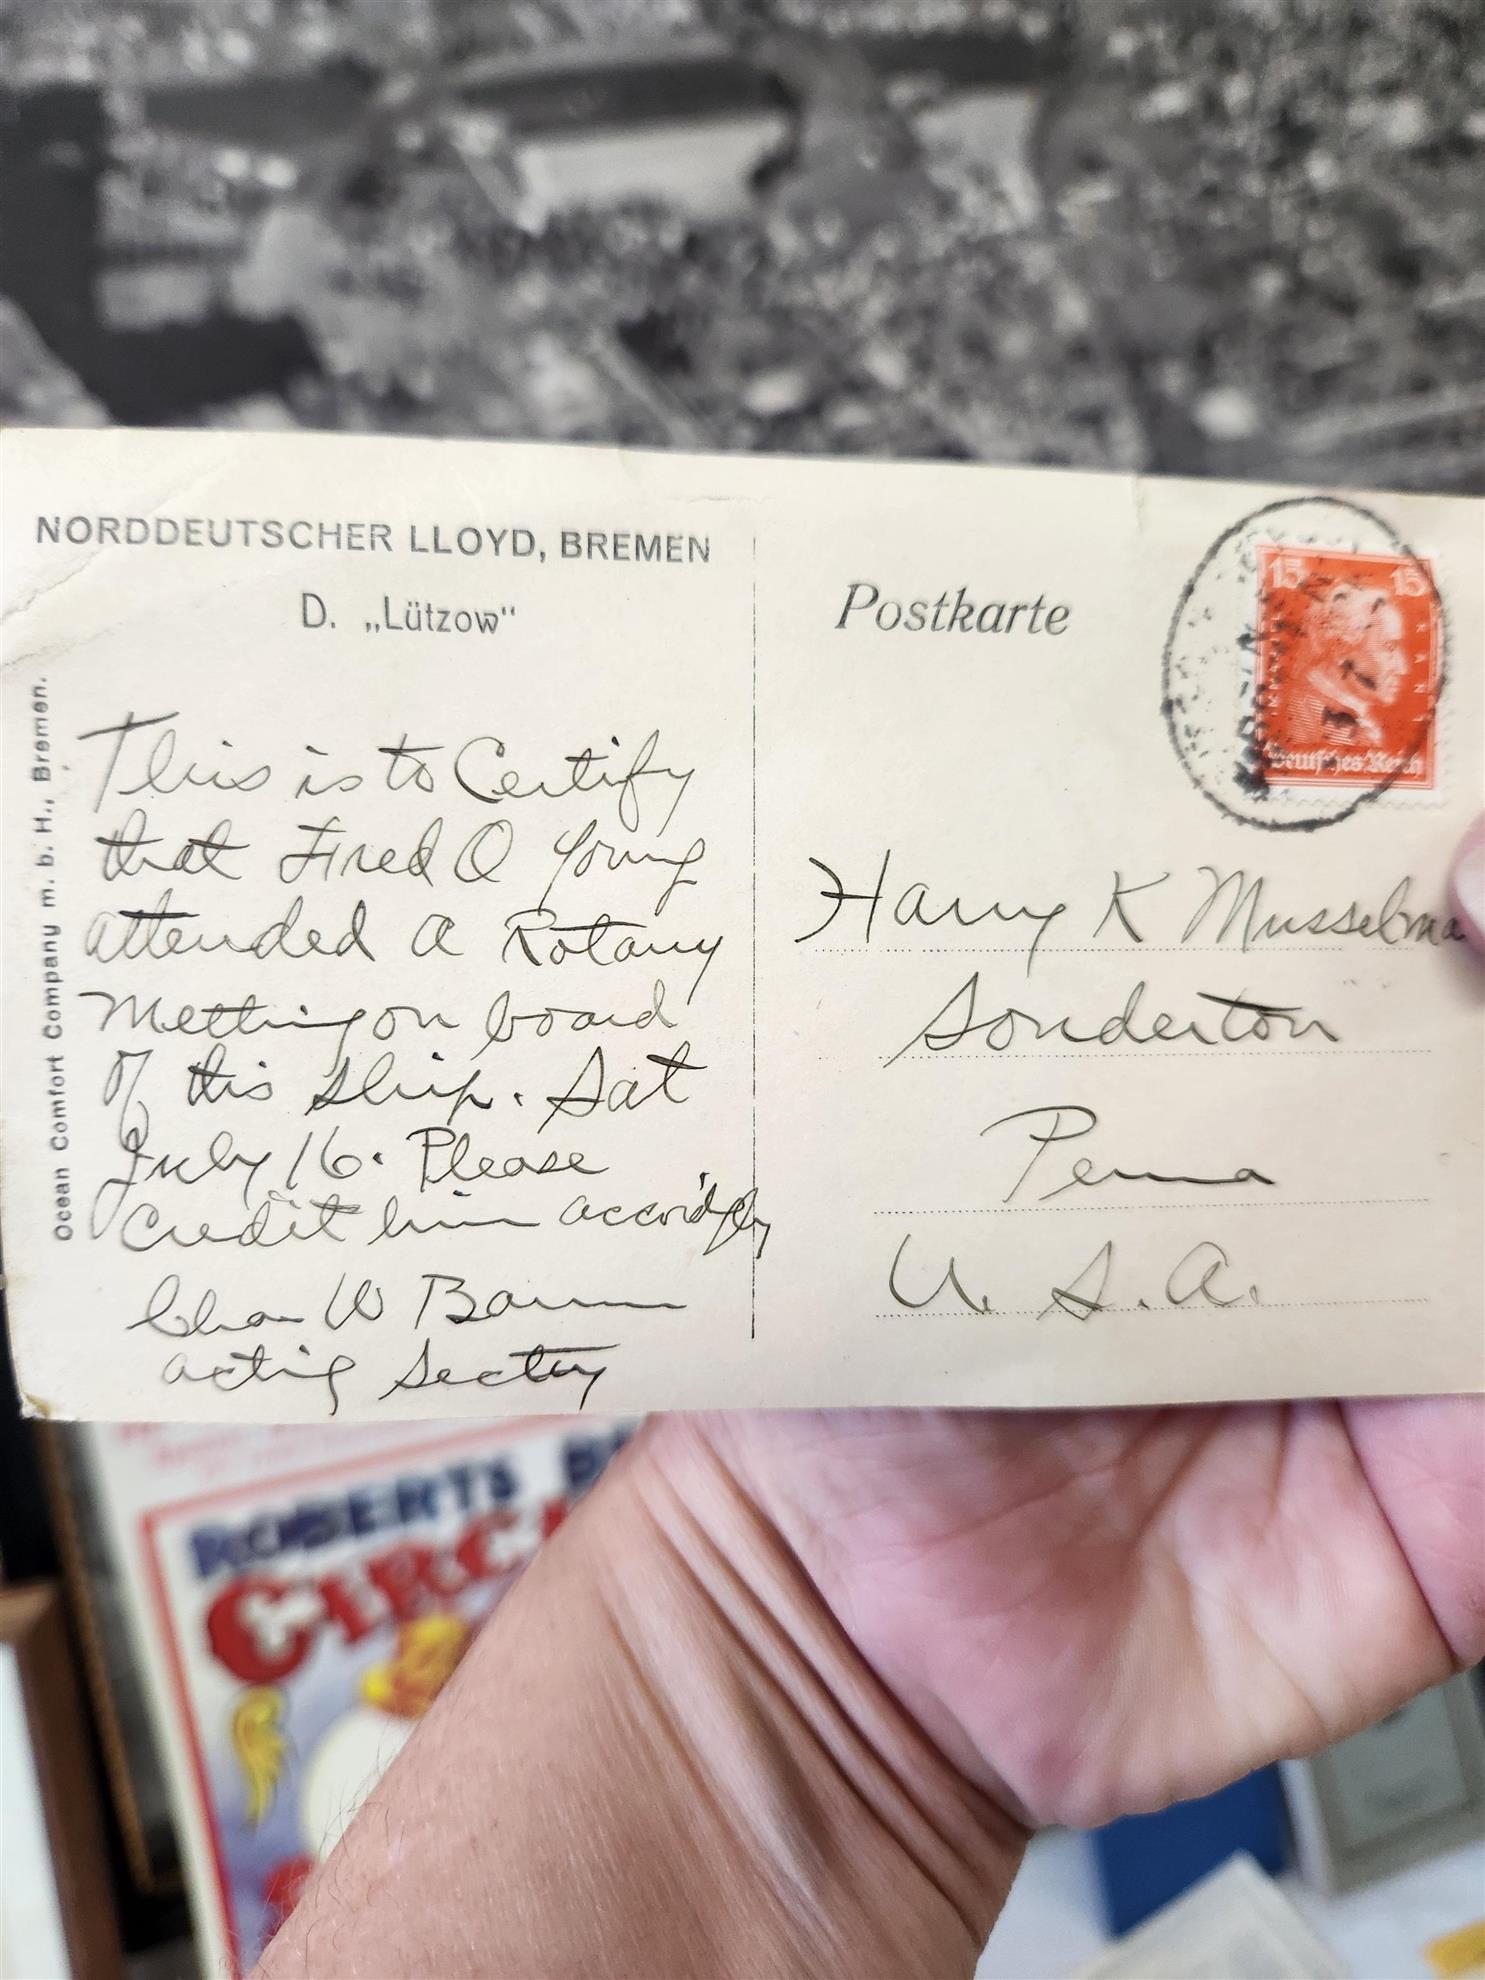 NORDDEUTSCHER LLOYD, BREMEN
D. „Lützow“
Ocean Comfort Company m. b. H., Bremen.
This is to Certify
that Fred O Young
attended a Rotary
Metting on board
of this ship. Sat
July 16. Please
Credit him accord'gly
Chas W Baum
acting Sectry
Postkarte
15 15
Deutsches Reich
Harry K Musselma
Souderton
Penna
U. S. A.
ROBERTS
CIRC